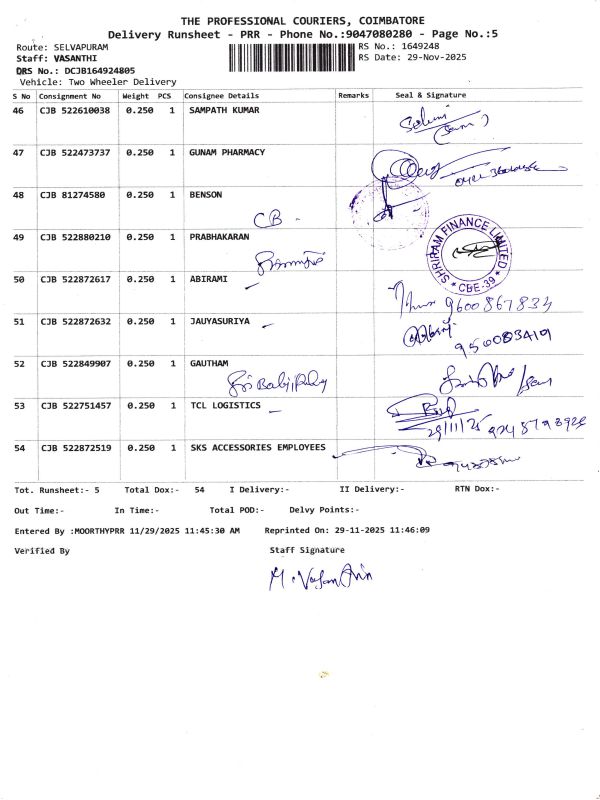 THE PROFESSIONAL COURIERS, COIMBATORE
Delivery Runsheet - PRR - Phone No.:9047080280 - Page No.:5
Route: SELVAPURAM RS No.: 1649248
Staff: VASANTHI RS Date: 29-Nov-2025
DRS No.: DCJB164924805
Vehicle: Two Wheeler Delivery
S No Consignment No Weight PCS Consignee Details Remarks Seal & Signature
46 CJB 522610038 0.250 1 SAMPATH KUMAR
47 CJB 522473737 0.250 1 GUNAM PHARMACY
48 CJB 81274580 0.250 1 BENSON
CB -
49 CJB 522880210 0.250 1 PRABHAKARAN
SHRIRAM FINANCE LIMITED
* CBE-39 *
50 CJB 522872617 0.250 1 ABIRAMI
9600867834
51 CJB 522872632 0.250 1 JAUYASURIYA
950083419
52 CJB 522849907 0.250 1 GAUTHAM
53 CJB 522751457 0.250 1 TCL LOGISTICS
29/11/25
54 CJB 522872519 0.250 1 SKS ACCESSORIES EMPLOYEES
Tot. Runsheet:- 5 Total Dox:- 54 I Delivery:- II Delivery:- RTN Dox:-
Out Time:- In Time:- Total POD:- Delvy Points:-
Entered By :MOORTHYPRR 11/29/2025 11:45:30 AM Reprinted On: 29-11-2025 11:46:09
Verified By Staff Signature